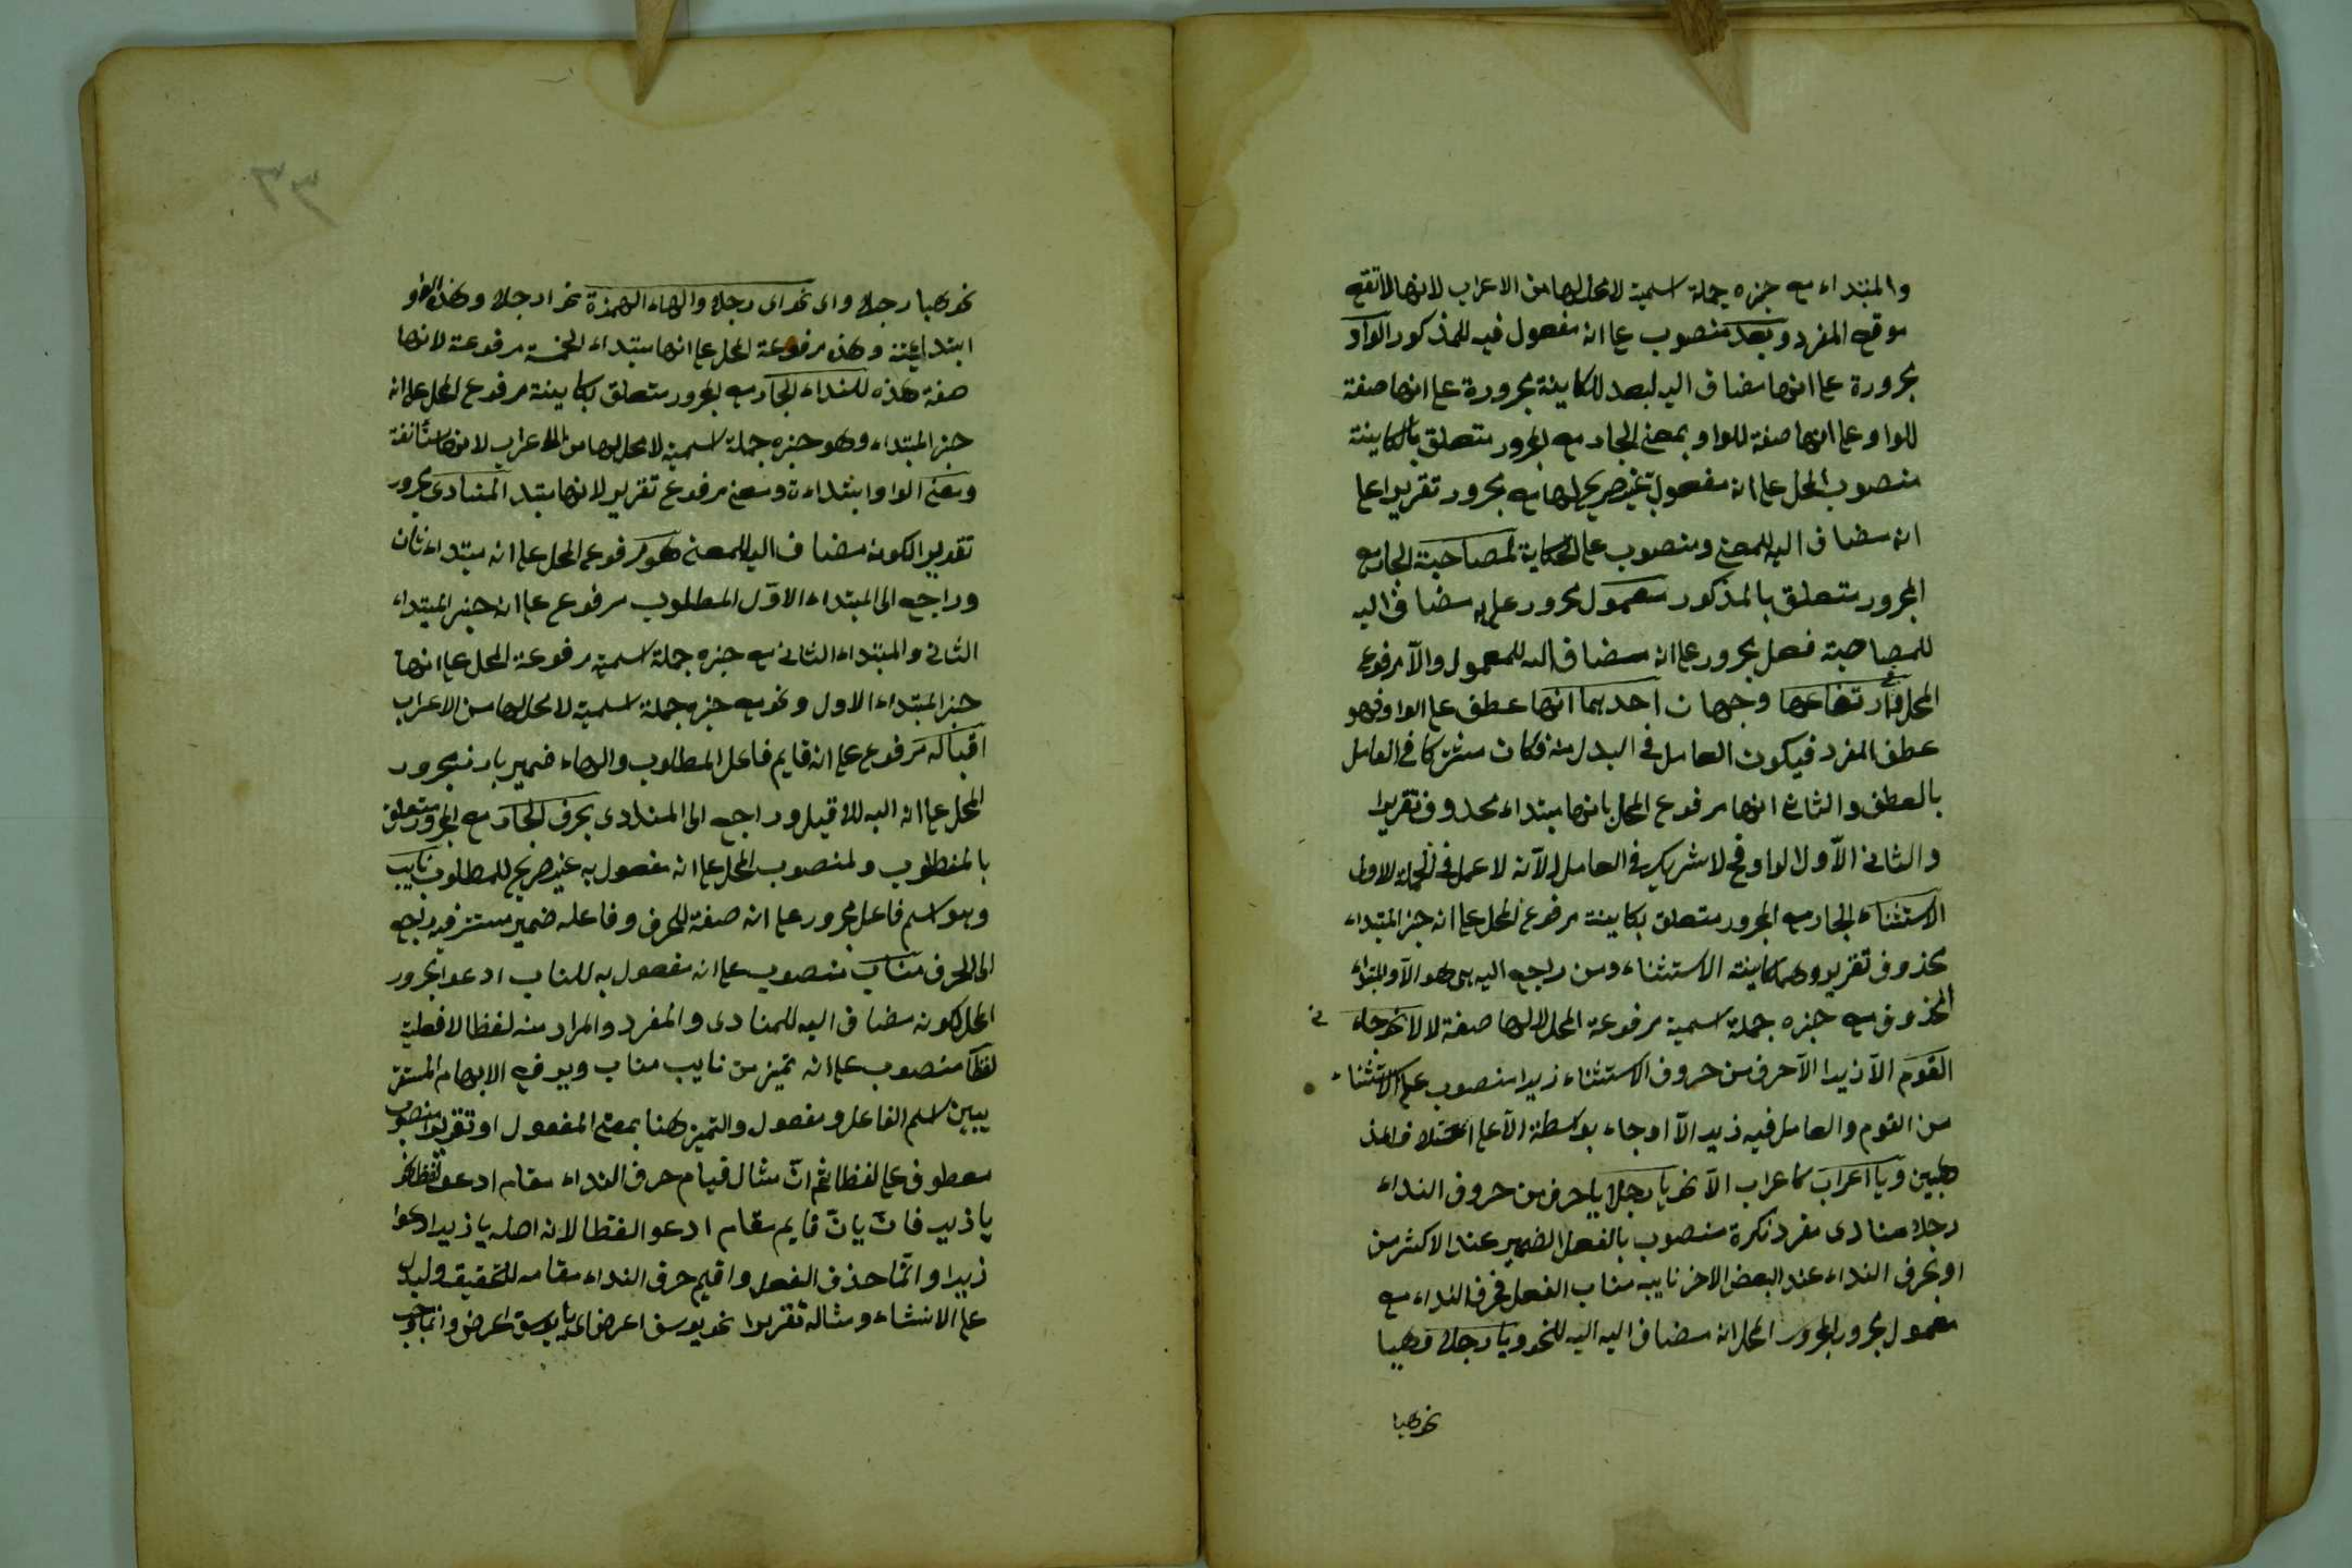 والمبتداء مع خبره جملة اسمية لا محل لها من الاعراب لانها لا تقع
موقع المفرد وبعد منصوب على انه مفعول فيه للمذكور الواو
مجرورة على انها مضاف اليه لبعد للكاينة مجرورة على انها صفة
للواو على انها صفة للواو بمعنى الجار مع المجرور متعلق بالكاينة
منصوب المحل على انه مفعول غير صريح لها مع مجرور تقريرا على
انه مضاف اليه للمعنى ومنصوب على الحكاية لمصاحبة الجار مع
المجرور متعلق بالمذكور معمول مجرور على انه مضاف اليه
للمصاحبة فعل مجرور على انه مضاف اليه للمعمول والا مرفوع
المحل وفي ارتفاعها وجهان احدهما انها عطف على الواو فهو
عطف المفرد فيكون العامل في البدل منه فكان مشتركا في العامل
بالعطف والثاني انها مرفوع المحل بانها مبتداء محذوف تقريرا
والثاني الاول الواو في لا شريك في العامل لانه لا عمل في الجملة الاولى
الاستثناء الجار مع المجرور متعلق بكاينة مرفوع المحل على انه خبر المبتداء
محذوف تقريرو كاينة الاستثناء ومن راجع اليه هى هو الا والمبتداء
المحذوف مع خبره جملة اسمية مرفوعة المحل لا لها صفة لالا نحو جاء في
القوم الا زيدا الا حرف من حروف الاستثناء زيدا منصوب على الاستثناء
من القوم والعامل فيه زيد الا او جاء بواسطة الا على اختلاف المذ
هبين ويا اعراب كاعراب الا نحو يا رجلا يا حرف من حروف النداء
رجلا منادى مفرد نكرة منصوب بالفعل الضمير عند الاكثر من
او بحرف النداء عند البعض الاخر نايبه مناب الفعل فحرف النداء مع
معمول مجرور المحل انه مضاف اليه اليه للنحو ويا رجلا وهيا
نحو هيا
٣٣
نحو هيا رجلا واى نحو اى رجلا والهاء الهمزة نحو ارجلا وهذه الواو
ابتداعيته وهذه مرفوعة المحل على انها مبتداء الخمسة مرفوعة لانها
صفة هذه للنداء الجار مع المجرور متعلق بكاينة مرفوع المحل على انه
خبر المبتداء وهو خبره جملة اسمية لا محل لها من الاعراب لانها مستأنفة
ومعنى الواو ابتداءة ومعنى مرفوع تقريرا لانها مبتداء المنادى مجرور
تقديرا لكونه مضاف اليه للمعنى هو مرفوع المحل على انه مبتداء ثان
وراجع الى المبتداء الاول المطلوب مرفوع على انه خبر المبتداء
الثاني والمبتداء الثاني مع خبره جملة اسمية مرفوعة المحل على انها
خبر المبتداء الاول ونحو مع خبره جملة اسمية لا محل لها من الاعراب
اقباله مرفوع على انه قايم فاعل المطلوب والهاء ضمير بارز مجرور
المحل على انه اليه للاقبل وراجع الى المنادى بحرف الجار مع المجرور متعلق
بالمطلوب ولمنصوب المحل على انه مفعول به غير صريح للمطلوب نايب
وهو اسم فاعل مجرور على انه صفة للحرف وفاعله ضمير مستتر فيه رجع
الى الحرف مناب منصوب على انه مفعول به للناب ادعوا مجرور
المحل لكونه مضاف اليه للمنادى والمفرد والمراد منه لفظا لا فعلية
لفظا منصوب على انه تميز من نايب مناب ويرفع الابهام المستقر
يبين اسم الفاعل ومفعول والتميز هنا بمعنى المفعول او تقريرا منصوب
معطوف على لفظا ثم ان مثال قيام حرف النداء مقام ادعو لفظا نحو
يا زيد فان يا ن قايم مقام ادعو الفظا لانه اصله يا زيد ادعوا
زيدا وانما حذف الفعل واقيم حرف النداء مقامه للتخفيف وليدل
على الانشاء ومثاله تقريرا نحو يوسف اعرض اى يا يوسف اعرض وانما وجب